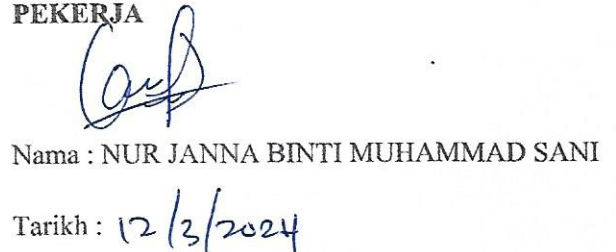 PEKERJA
Nama : NUR JANNA BINTI MUHAMMAD SANI
Tarikh : 12/3/2024